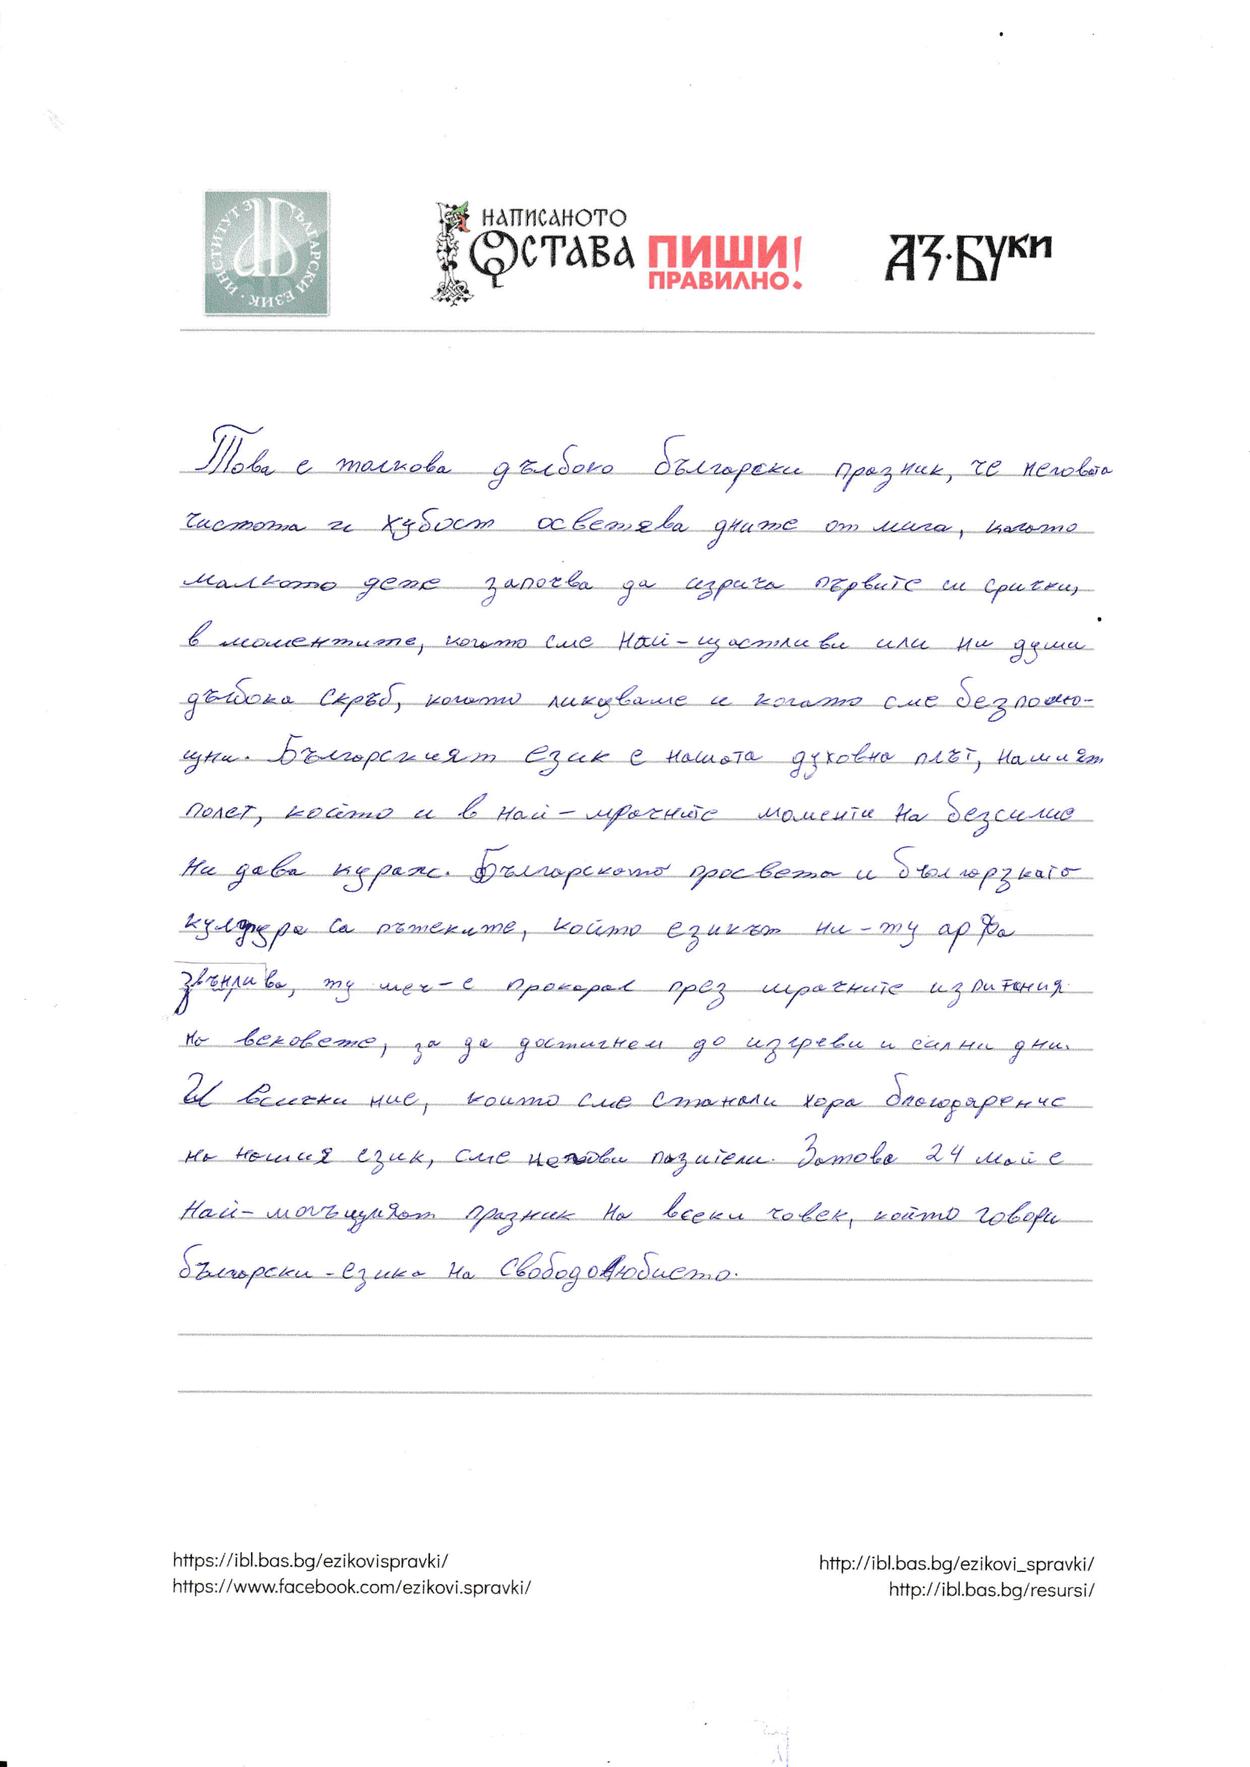 ИНСТИТУТ ЗА БЪЛГАРСКИ ЕЗИК
НАПИСАНОТО
ОСТАВА ПИШИ!
ПРАВИЛНО.
АЗ·БУКИ
Това е толкова дълбоко български празник, че неговата
чистота и хубост осветява дните от мига, когато
малкото дете започва да изрича първите си срички,
в моментите, когато сме най-щастливи или ни души
дълбока скръб, когато ликуваме и когато сме безпомо-
щни. Българският език е нашата духовна плът, нашият
полет, който и в най-мрачните моменти на безсилие
ни дава кураж. Българската просвета и бългорзката
култура са пътеките, който езикът ни-ту арфа
звънлива, ту меч-е прокарал през мрачните изпитания
на вековете, за да достигнем до изгреви и силни дни.
И всички ние, които сме станали хора благодарение
на нашия език, сме негови пазители. Затова 24 май е
Най-могъщият празник на всеки човек, който говори
български-езика на свободолюбието.
https://ibl.bas.bg/ezikovispravki/
https://www.facebook.com/ezikovi.spravki/
http://ibl.bas.bg/ezikovi_spravki/
http://ibl.bas.bg/resursi/